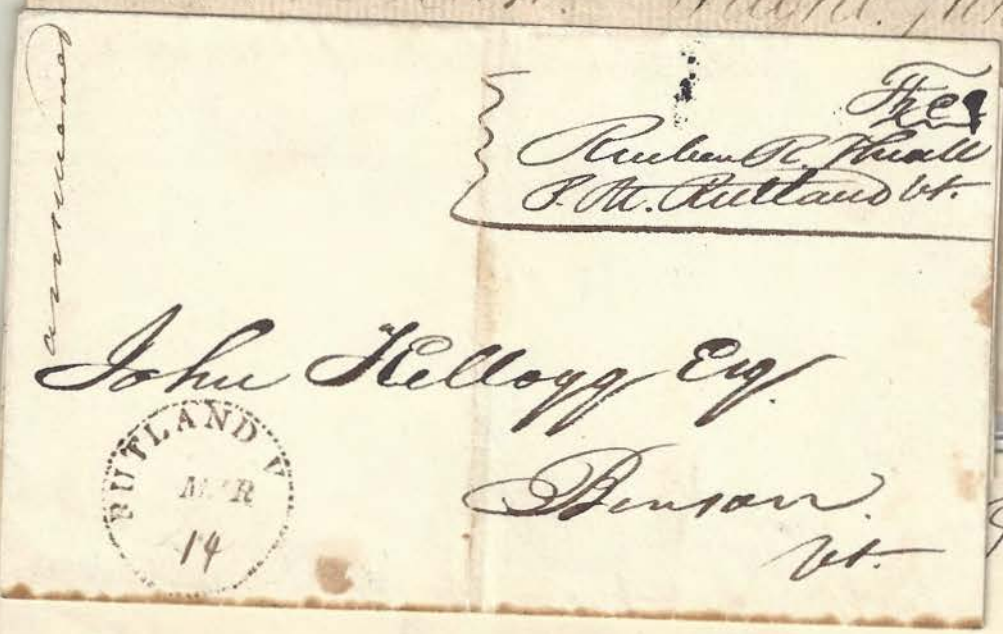 Free
Reuben R. Thrall
P. M. Rutland Vt.
John Kellogg Esq.
Benson.
Vt.
RUTLAND V
MAR
14